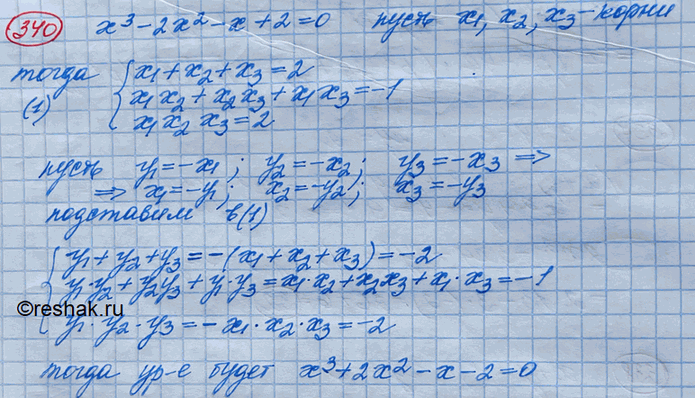 340 x³-2x²-x+2=0 пусть x₁, x₂, x₃ - корни
тогда { x₁+x₂+x₃=2
(1) x₁x₂+x₂x₃+x₁x₃=-1
x₁x₂x₃=2
пусть y₁=-x₁; y₂=-x₂; y₃=-x₃ ⇒
⇒ x₁=-y₁; x₂=-y₂; x₃=-y₃
подставим в (1)
{ y₁+y₂+y₃=-(x₁+x₂+x₃)=-2
y₁·y₂+y₂y₃+y₁·y₃=x₁·x₂+x₂x₃+x₁·x₃=-1
©reshak.ru
y₁·y₂·y₃=-x₁·x₂·x₃=-2
тогда ур-е будет x³+2x²-x-2=0